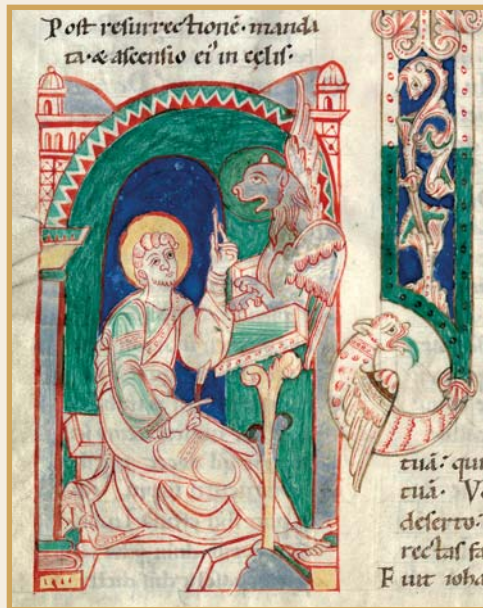 Post resurrectionē· manda
ta· & ascensio ei' in cęlis·
tuā: qui
tuā· V
deserto:
rectas fa
Fuit ioha